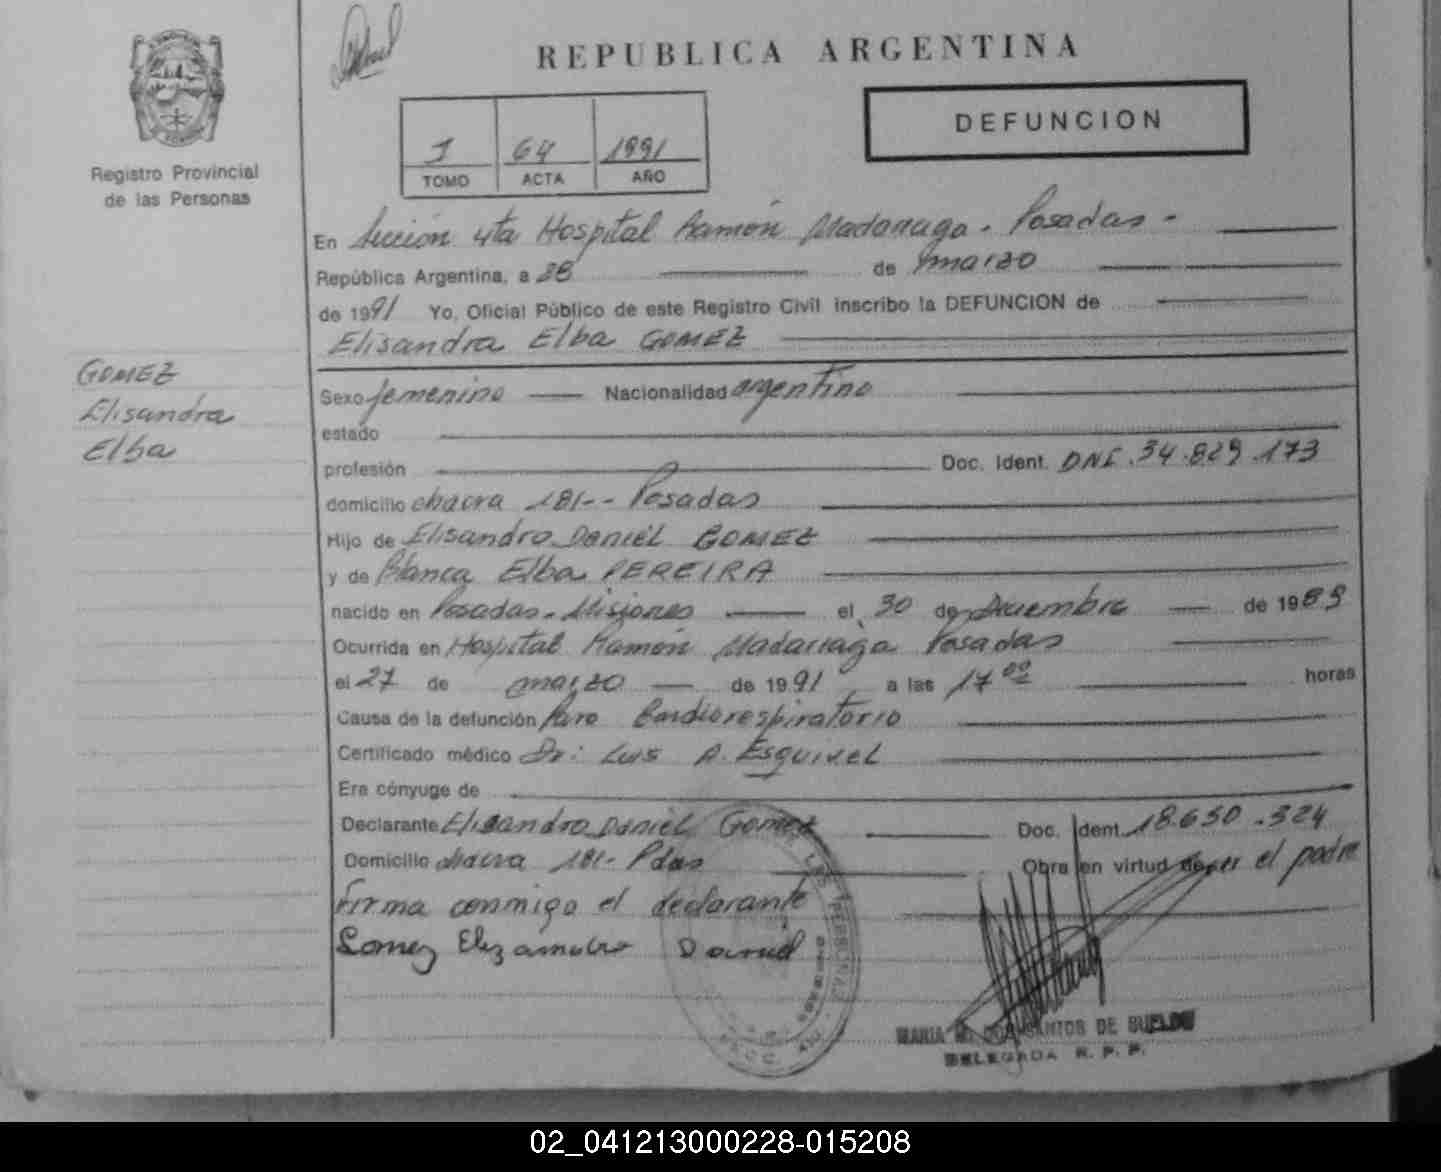 REPUBLICA ARGENTINA
Registro Provincial
de las Personas
1 64 1991
TOMO ACTA AÑO
DEFUNCION
En Sección 4ta Hospital Ramón Madariaga - Posadas -
República Argentina, a 28 de marzo
de 1991 Yo, Oficial Público de este Registro Civil inscribo la DEFUNCION de
Elisandra Elba GOMEZ
GOMEZ
Elisandra
Elba
Sexo femenino Nacionalidad argentino
estado
profesión Doc. Ident. DNI. 34.829.173
domicilio chacra 181-- Posadas
Hijo de Elisandro Daniel GOMEZ
y de Blanca Elba PEREIRA
nacido en Posadas - Misiones el 30 de Diciembre de 1989
Ocurrida en Hospital Ramón Madariaga Posadas
el 27 de marzo de 1991 a las 17 00 horas
Causa de la defunción Paro Cardiorespiratorio
Certificado médico Dr: Luis A. Esquivel
Era cónyuge de
Declarante Elisandro Daniel Gomez Doc. Ident. 18.650.324
Domicilio chacra 181- Pdas Obra en virtud de ser el padre
Firma conmigo el declarante
Gomez Elizandro Daniel
MARIA DOS SANTOS DE
DELEGADA R. P. P.
02_041213000228-015208